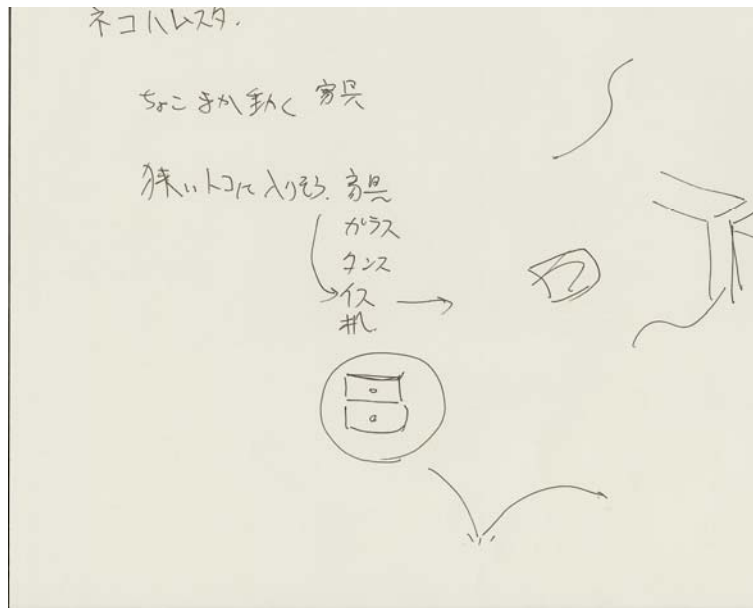 ネコハムスタ.
ちょこまか動く 家具
狭いトコに入りそう. 家具
ガラス
タンス
イス
机.